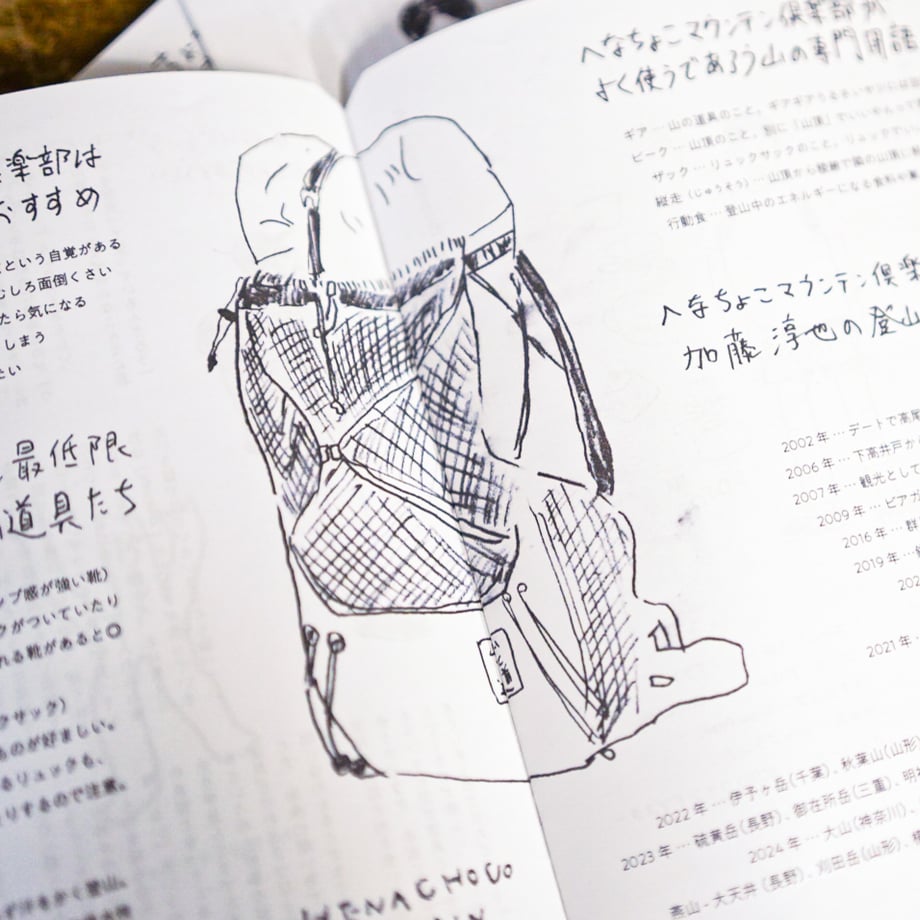 楽部は
おすすめ
という自覚がある
むしろ面倒くさい
たら気になる
しまう
たい
最低限
道具たち
ップ感が強い靴)
クがついていたり
れる靴があると◎
クサック)
ものが好ましい。
るリュックも、
りするので注意。
汗をかく登山。
HENACHOCO
へなちょこマウンテン倶楽部が
よく使うであろう山の専門用語
ギア…山の道具のこと。ギアギア
ピーク…山頂のこと。別に「山頂」でいいやんって
ザック…リュックサックのこと。リュックでい
縦走(じゅうそう)…山頂から稜線で隣の山頂に
行動食…登山中のエネルギーになる食料や
へなちょこマウンテン倶楽
加藤淳也の登山
2002年…デートで高尾
2006年…下高井戸か
2007年…観光として
2009年…ビアガ
2016年…群
2019年…
202
2021年…
2022年…伊予ヶ岳(千葉)、秋葉山(山形)
2023年…硫黄岳(長野)、御在所岳(三重)、明神
2024年…大山(神奈川)、
燕山-大天井(長野)、刈田岳(山形)、